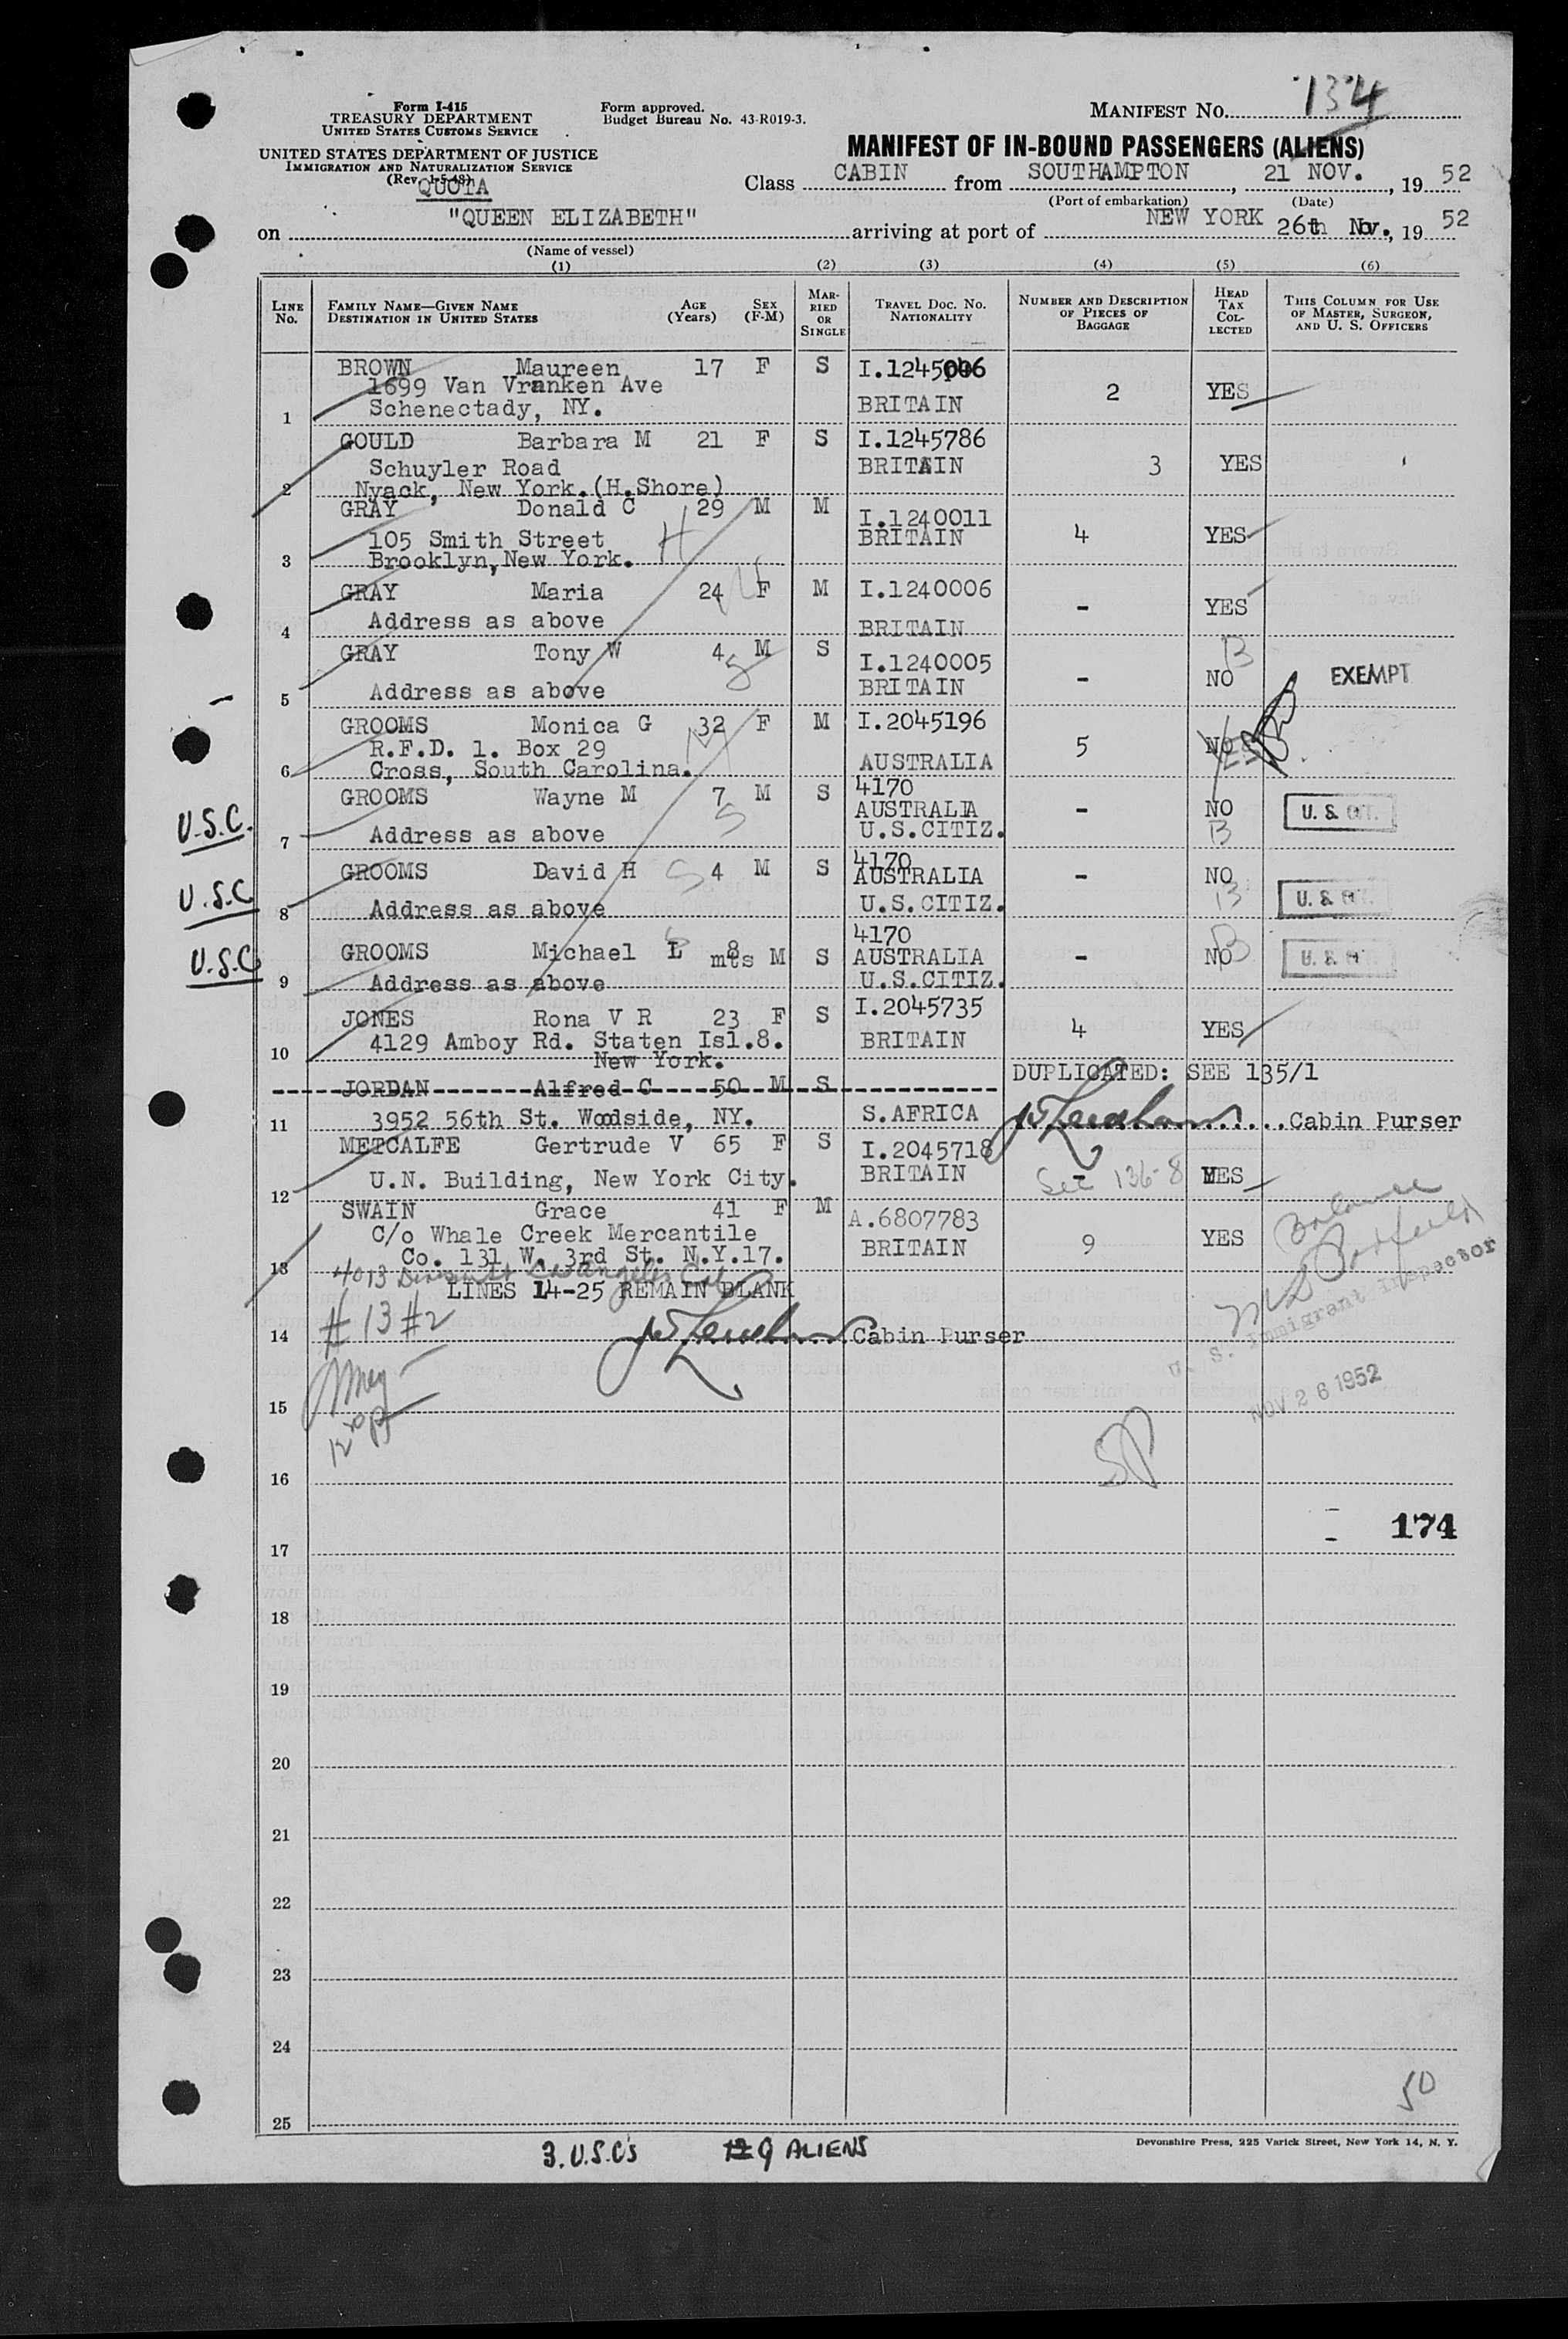 Form I-415
TREASURY DEPARTMENT
UNITED STATES CUSTOMS SERVICE
UNITED STATES DEPARTMENT OF JUSTICE
IMMIGRATION AND NATURALIZATION SERVICE
(Rev. 1-5-48)
QUOTA
Form approved.
Budget Bureau No. 43-R019-3.
MANIFEST No. 134
MANIFEST OF IN-BOUND PASSENGERS (ALIENS)
Class CABIN from SOUTHAMPTON, 21 NOV., 19 52
(Port of embarkation) (Date)
on "QUEEN ELIZABETH" arriving at port of NEW YORK 26th Nov., 19 52
(Name of vessel)
(1) (2) (3) (4) (5) (6)
LINE No.
FAMILY NAME—GIVEN NAME
DESTINATION IN UNITED STATES
AGE (Years)
SEX (F-M)
MARRIED OR SINGLE
TRAVEL DOC. No.
NATIONALITY
NUMBER AND DESCRIPTION OF PIECES OF BAGGAGE
HEAD TAX COLLECTED
THIS COLUMN FOR USE OF MASTER, SURGEON, AND U. S. OFFICERS
BROWN Maureen 17 F S
1699 Van Vranken Ave
BRITAIN 2 YES
1 Schenectady, NY.
GOULD Barbara M 21 F S I.1245786
Schuyler Road BRITAIN 3 YES
2 Nyack, New York.(H.Shore)
GRAY Donald C 29 M M I.1240011
105 Smith Street BRITAIN 4 YES
3 Brooklyn,New York.
GRAY Maria 24 F M I.1240006
- YES
4 Address as above BRITAIN
GRAY Tony W 4 M S I.1240005
5 Address as above BRITAIN - NO B EXEMPT
5
GROOMS Monica G 32 F M I.2045196
R.F.D. 1. Box 29 5 NO
6 Cross, South Carolina. AUSTRALIA
GROOMS Wayne M 7 M S 4170
AUSTRALIA - NO
U.S.C. 7 Address as above U.S.CITIZ. B U. S. CIT.
GROOMS David H 4 M S 4170
AUSTRALIA - NO
U.S.C 8 Address as above U.S.CITIZ. B U. S. CIT.
GROOMS Michael L 8 mts M S 4170
AUSTRALIA - NO B
U.S.C 9 Address as above U.S.CITIZ. U. S. CIT.
JONES Rona V R 23 F S I.2045735
4129 Amboy Rd. Staten Isl.8. BRITAIN 4 YES
10 New York.
JORDAN Alfred C 50 M S DUPLICATED: SEE 135/1
11 3952 56th St. Woodside, NY. S.AFRICA Cabin Purser
METCALFE Gertrude V 65 F S I.2045718
12 U.N. Building, New York City. BRITAIN See 136-8 YES
SWAIN Grace 41 F M A.6807783
C/o Whale Creek Mercantile
13 Co. 131 W. 3rd St. N.Y.17. BRITAIN 9 YES
Los Angeles Cal
LINES 14-25 REMAIN BLANK
#13 #2
14 Cabin Purser
U. S. Immigrant Inspector
NOV 26 1952
15
16
17 174
18
19
20
21
22
23
24
50
25
Devonshire Press, 225 Varick Street, New York 14, N. Y.
3. U.S.C's 9 ALIENS